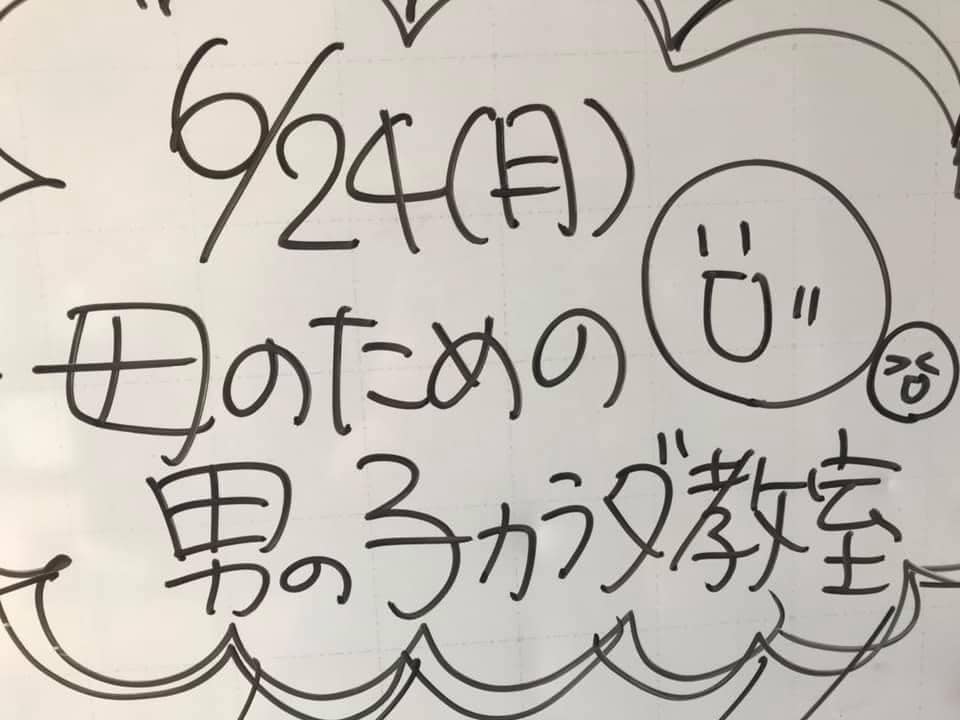 6/24(月)
母のための
男の子カラダ教室